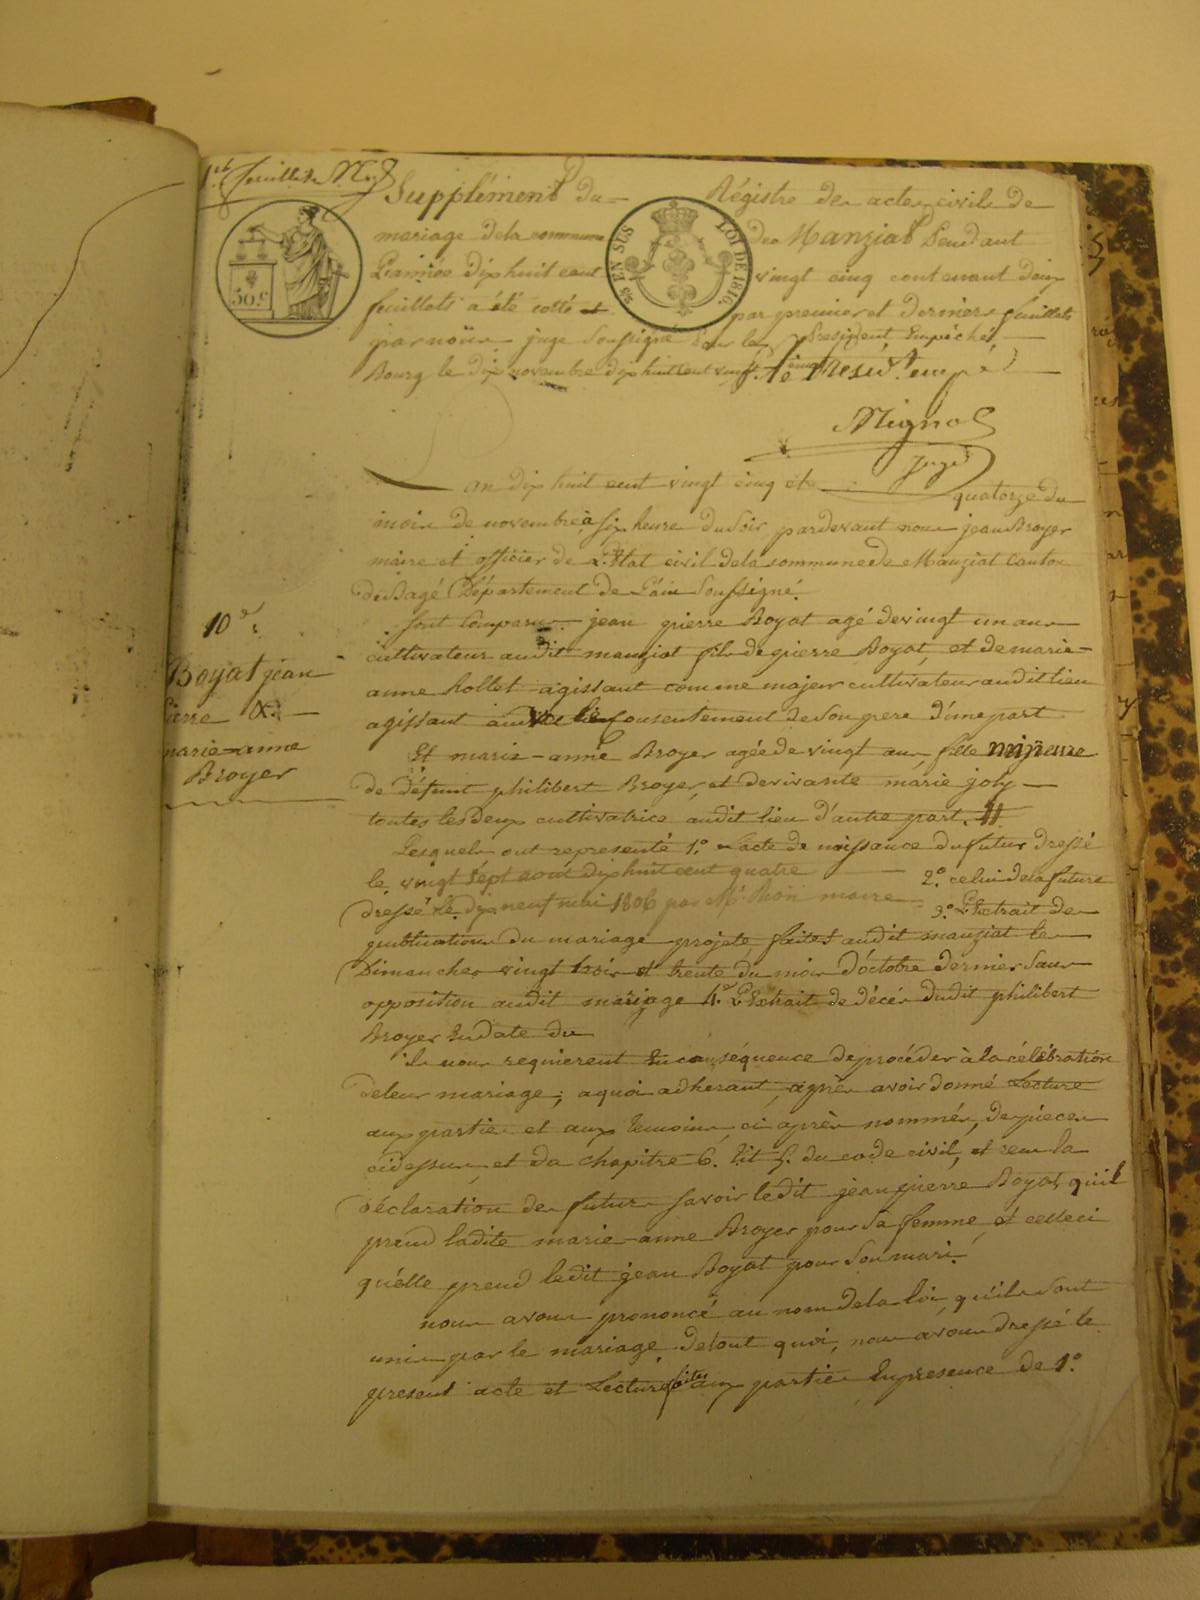 1er feuillet Mg
Supplément du Régistre des actes civils de
mariage de la commune de Manziat Pendant
L'année dix huit cent vingt cinq contenant deux
feuillets a été cotté et par premier et dernier feuillets
par nous juge soussigné pour le President Empéché
Bourg le dix novembre dix huit cent vingt cinq
Mignot
Juge
50 c.
5/8 EN SUS LOI DE 1816.
an dix huit cent vingt cinq et le quatorze du
mois de novembre à six heures du soir, pardevant nous jean Broyer
maire et officier de L'Etat civil de la commune de Manziat Canton
de Bagé Département de L'ain soussigné.
10e
Boyat jean
Pierre &
marie-anne
Broyer
sont comparus jean pierre Boyat agé de vingt un ans
cultivateur audit manziat fils de pierre Boyat, et de marie-
anne Rollet agissant comme majeur cultivateur audit lieu
agissant du consentement de son pere d'une part
Et marie-anne Broyer agée de vingt ans, fille mineure
de défunt philibert Broyer, et de vivante marie joly
toutes les deux cultivatrices audit lieu d'autre part.
Lesquels ont représenté 1.° acte de naissance du futur dressé
le vingt sept aout dix huit cent quatre 2.° celui de la future
dressé le dix neuf mai 1806 par Mr. maire 3.° L'Extrait des
publications du mariage projeté, faites audit manziat les
Dimanches vingt trois et trente du mois D'octobre dernier sans
opposition audit mariage 4.° L'Extrait de décés dudit philibert
Broyer en date du
ils nous requierent En conséquence de procéder à la célébration
de leur mariage; a quoi adherant, après avoir donné Lecture
aux parties et aux temoins, ci après nommés, des pièces
cidessus, et du chapitre 6. tit 5. du code civil, et reçu la
déclaration des futurs savoir ledit jean pierre Boyat qu'il
prend ladite marie-anne Broyer pour sa femme, et celleci
qu'elle prend ledit jean Boyat pour son mari.
nous avons prononcé au nom de la loi, qu'ils sont
unis par le mariage, de tout quoi, nous avons dressé le
present acte et Lecture faite aux parties En presence de 1.°